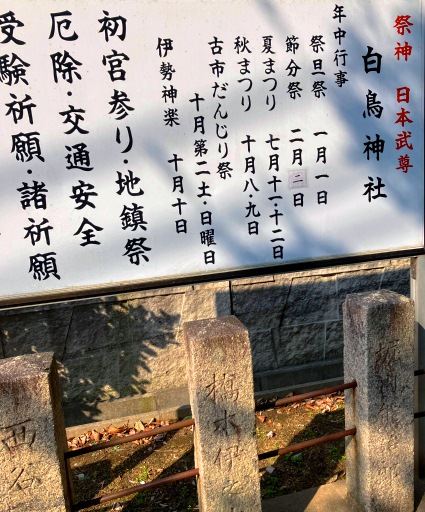 祭神 日本武尊
白鳥神社
年中行事
祭旦祭 一月一日
節分祭 二月二日
夏まつり 七月十一・十二日
秋まつり 十月八・九日
古市だんじり祭
十月第二土・日曜日
伊勢神楽 十月十日
初宮参り・地鎮祭
厄除・交通安全
受験祈願・諸祈願